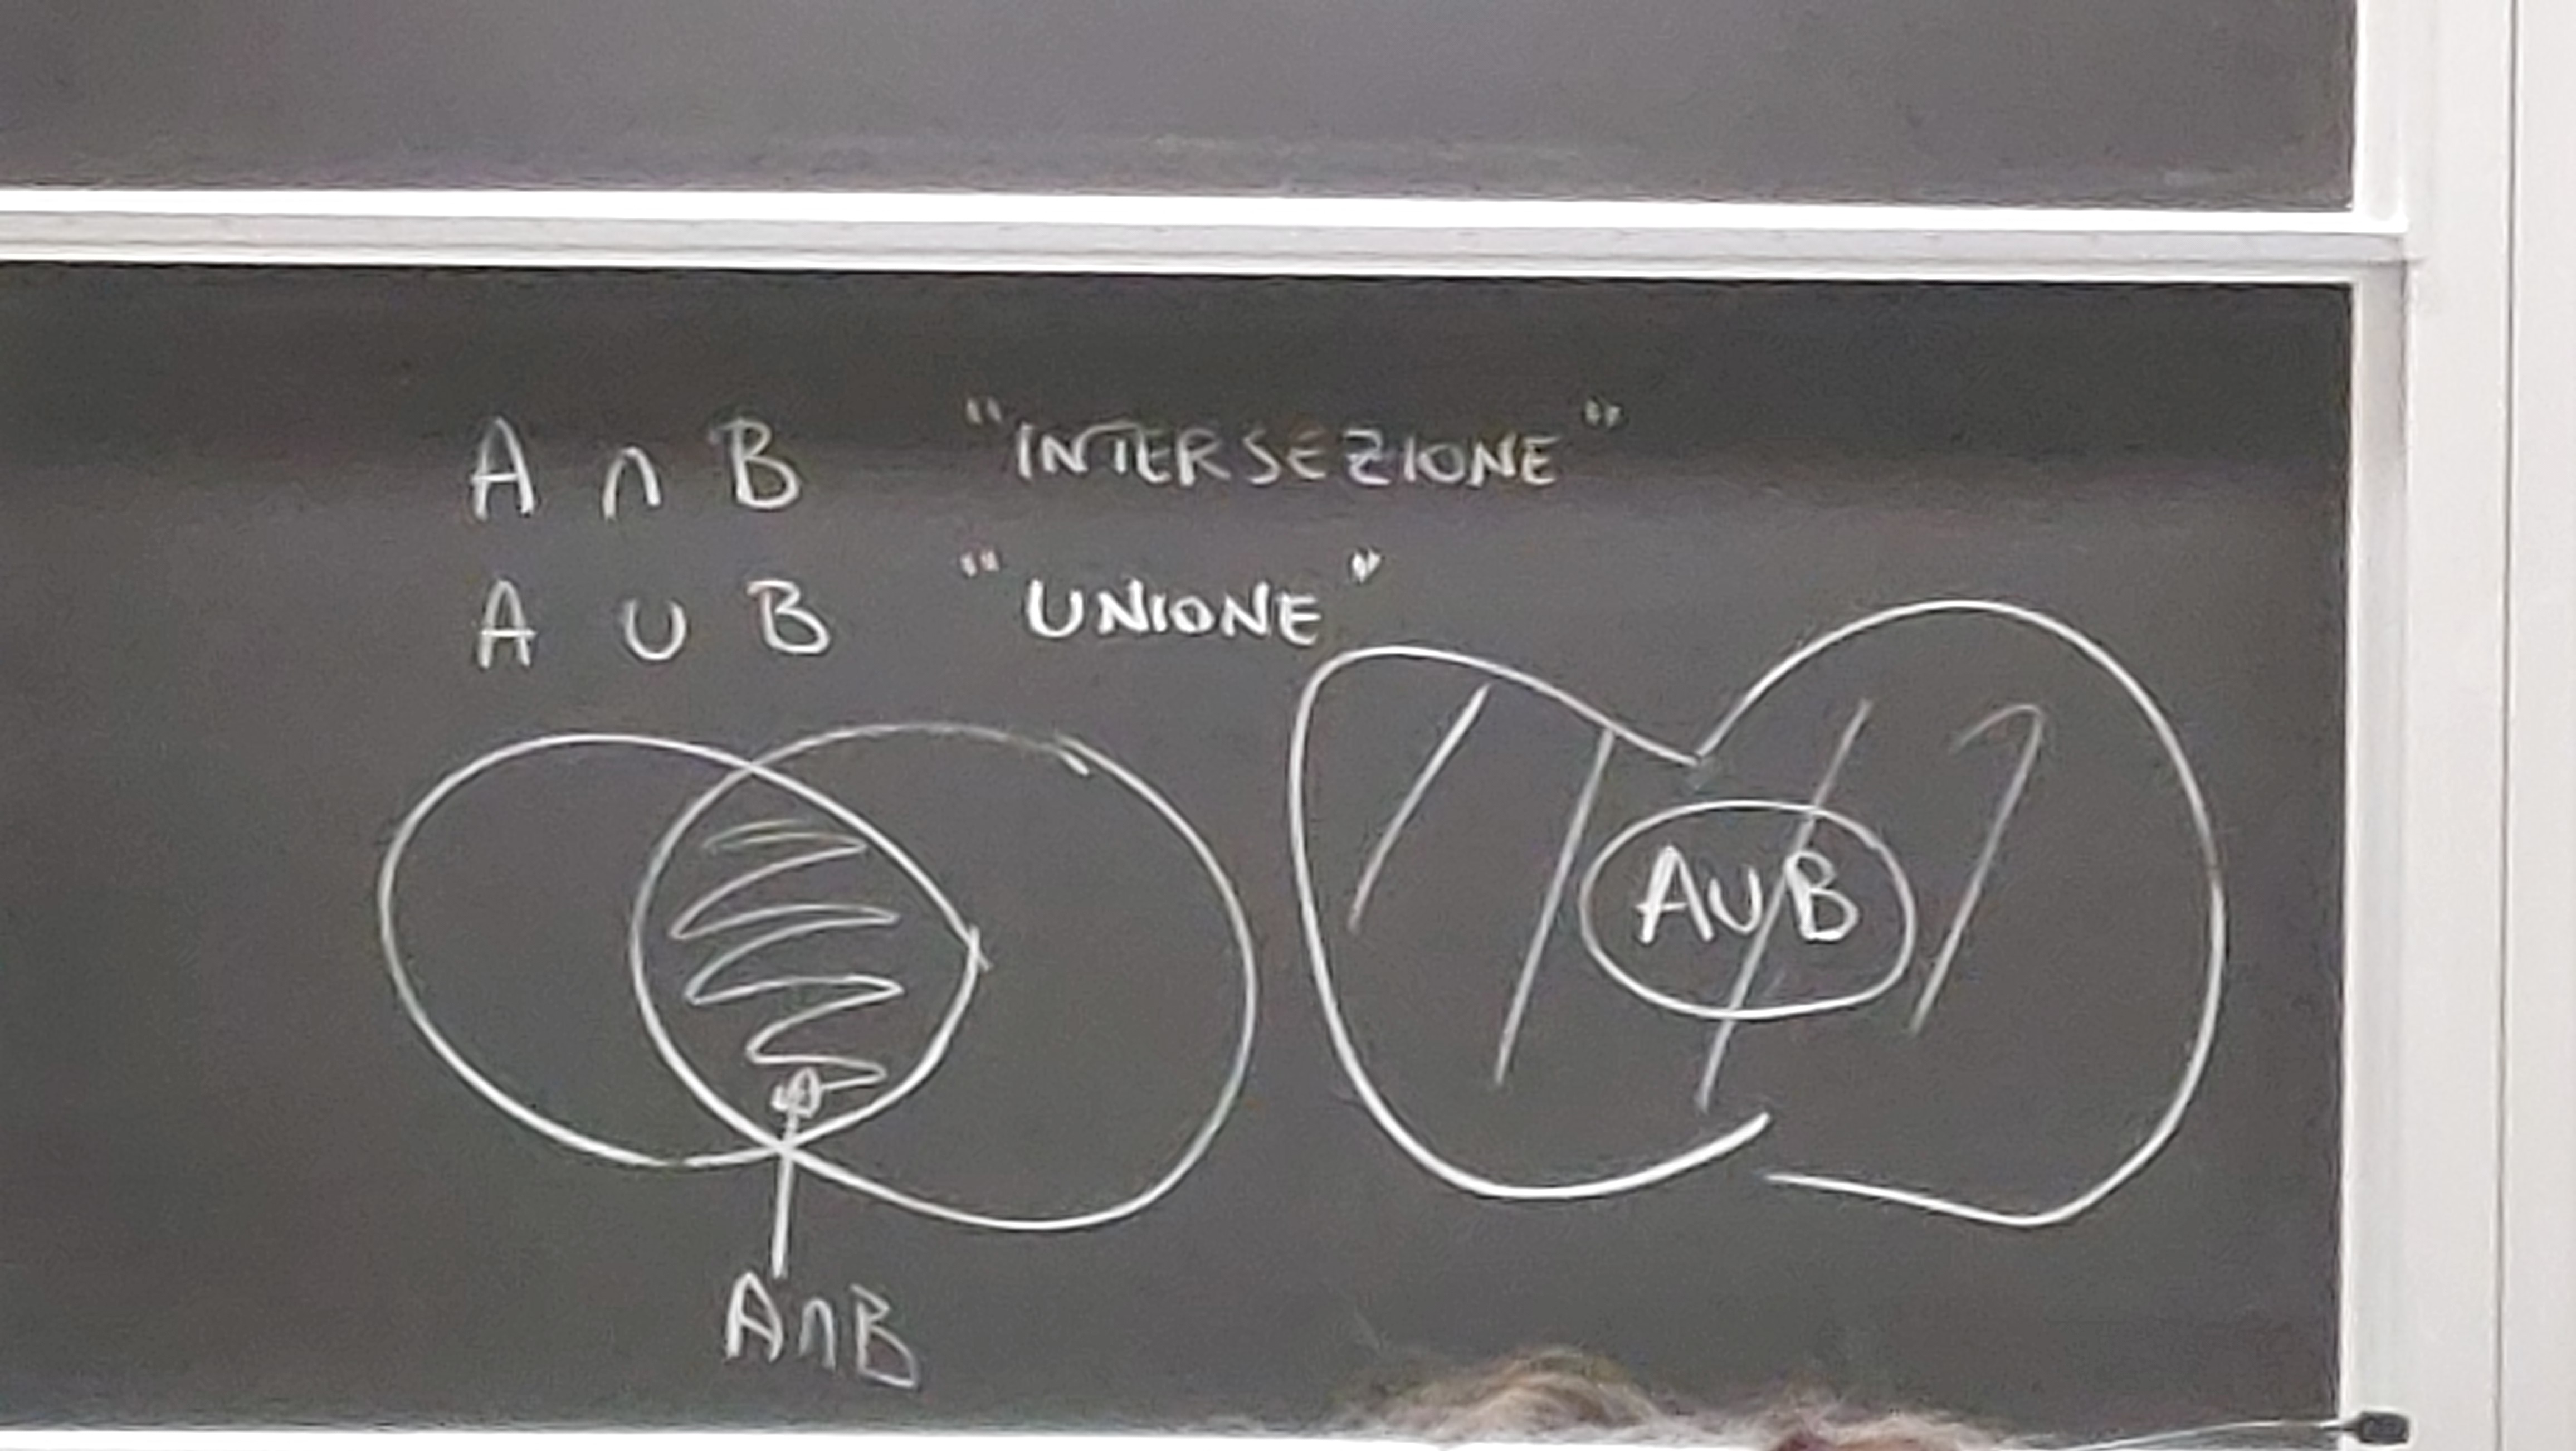 A ∩ B "INTERSEZIONE"
A ∪ B "UNIONE"
A∪B
A∩B